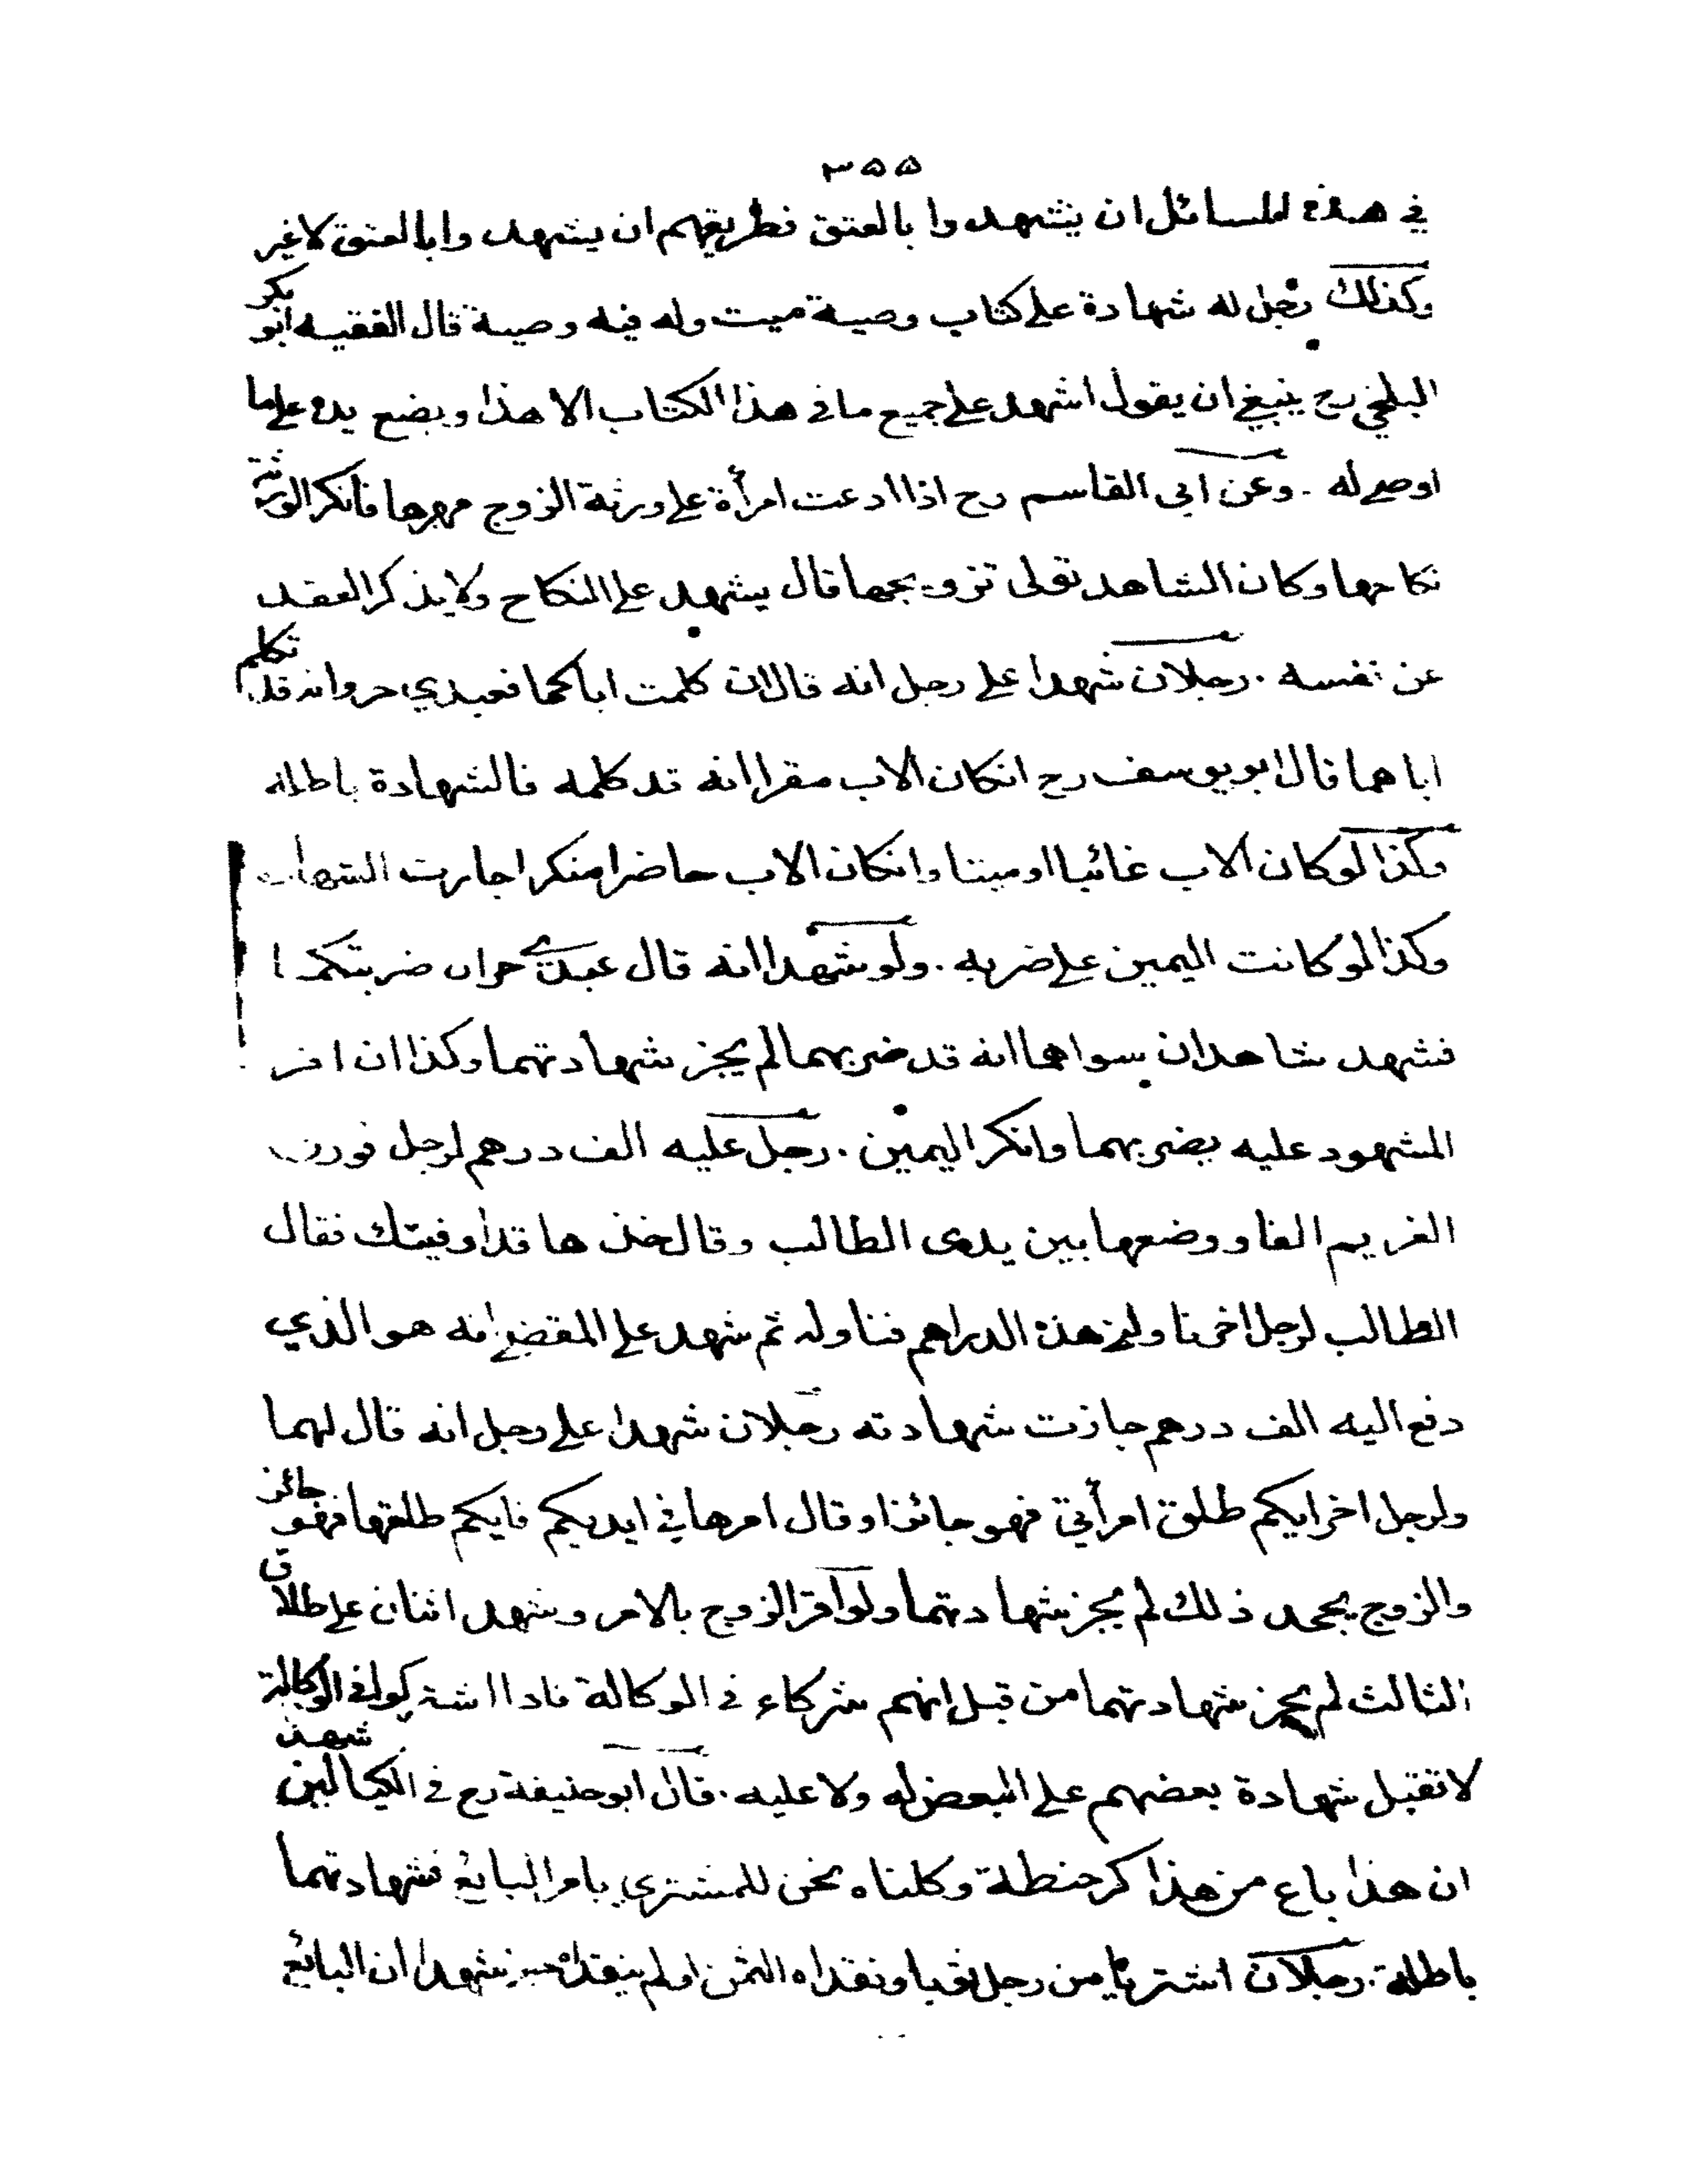 ٣٥٥
في هذه المسائل ان يشهدوا بالعتق فطريقهم ان يشهدوا بالعتق لاغير
وكذلك رجل له شهادة على كتاب وصية ميت وله فيه وصية قال الفقيه ابو بكر
البلخي رح ينبغي ان يقول اشهد على جميع ما في هذا الكتاب الا هذا ويضع يده على ما
اوصى له . وعن ابى القاسم رح اذا ادعت امرأة على ورثة الزوج مهرها فانكر الورثة
نكاحها وكان الشاهد تولى تزويجها قال يشهد على النكاح ولا يذكر العقد
عن نفسه . رجلان شهدا على رجل انه قال ان كلمت اباكما فعبدي حر وانه قد تكلم
اباهما قال ابو يوسف رح انكان الاب مقرا انه قد كلمه فالشهادة باطلة
وكذا لو كان الاب غائبا او ميتا وانكان الاب حاضرا منكرا جازت الشهادة
وكذا لو كانت اليمين على ضربه . ولو شهدا انه قال عبدي حر ان ضربتكما
فشهد شاهدان سواهما انه قد ضربهما لم يجز شهادتهما وكذا ان اقر
المشهود عليه بضربهما وانكر اليمين . رجل عليه الف درهم لرجل فوزن
الغريم الفا ووضعها بين يدى الطالب وقال خذها قد اوفيتك فقال
الطالب لرجل اخر ناولني هذه الدراهم فناوله ثم شهد على المقتضي انه هو الذي
دفع اليه الف درهم جازت شهادته رجلان شهدا على رجل انه قال لهما
ولرجل اخر ايكم طلق امرأتي فهو جائز او قال امرها في ايديكم فايكم طلقها فهو جائز
والزوج يجحد ذلك لم يجز شهادتهما ولو اقر الزوج بالامر وشهد اثنان على طلاق
الثالث لم يجز شهادتهما من قبل انهم شركاء في الوكالة فاذا اشتركوا في الوكالة
لا تقبل شهادة بعضهم على البعض له ولا عليه . قال ابو حنيفة رح في الكيالين شهدا
ان هذا باع من هذا كر حنطة وكلناه نحن للمشتري بامر البايع فشهادتهما
باطلة . رجلان اشتريا من رجل ثوبا ونقداه الثمن او لم ينقداه شهدا ان البائع